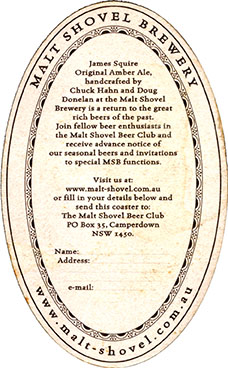 MALT SHOVEL BREWERY
James Squire
Original Amber Ale,
handcrafted by
Chuck Hahn and Doug
Donelan at the Malt Shovel
Brewery is a return to the great
rich beers of the past.
Join fellow beer enthusiasts in
the Malt Shovel Beer Club and
receive advance notice of
our seasonal beers and invitations
to special MSB functions.
Visit us at:
www.malt-shovel.com.au
or fill in your details below and
send this coaster to:
The Malt Shovel Beer Club
PO Box 35, Camperdown
NSW 1450.
Name:
Address:
e-mail:
www.malt-shovel.com.au